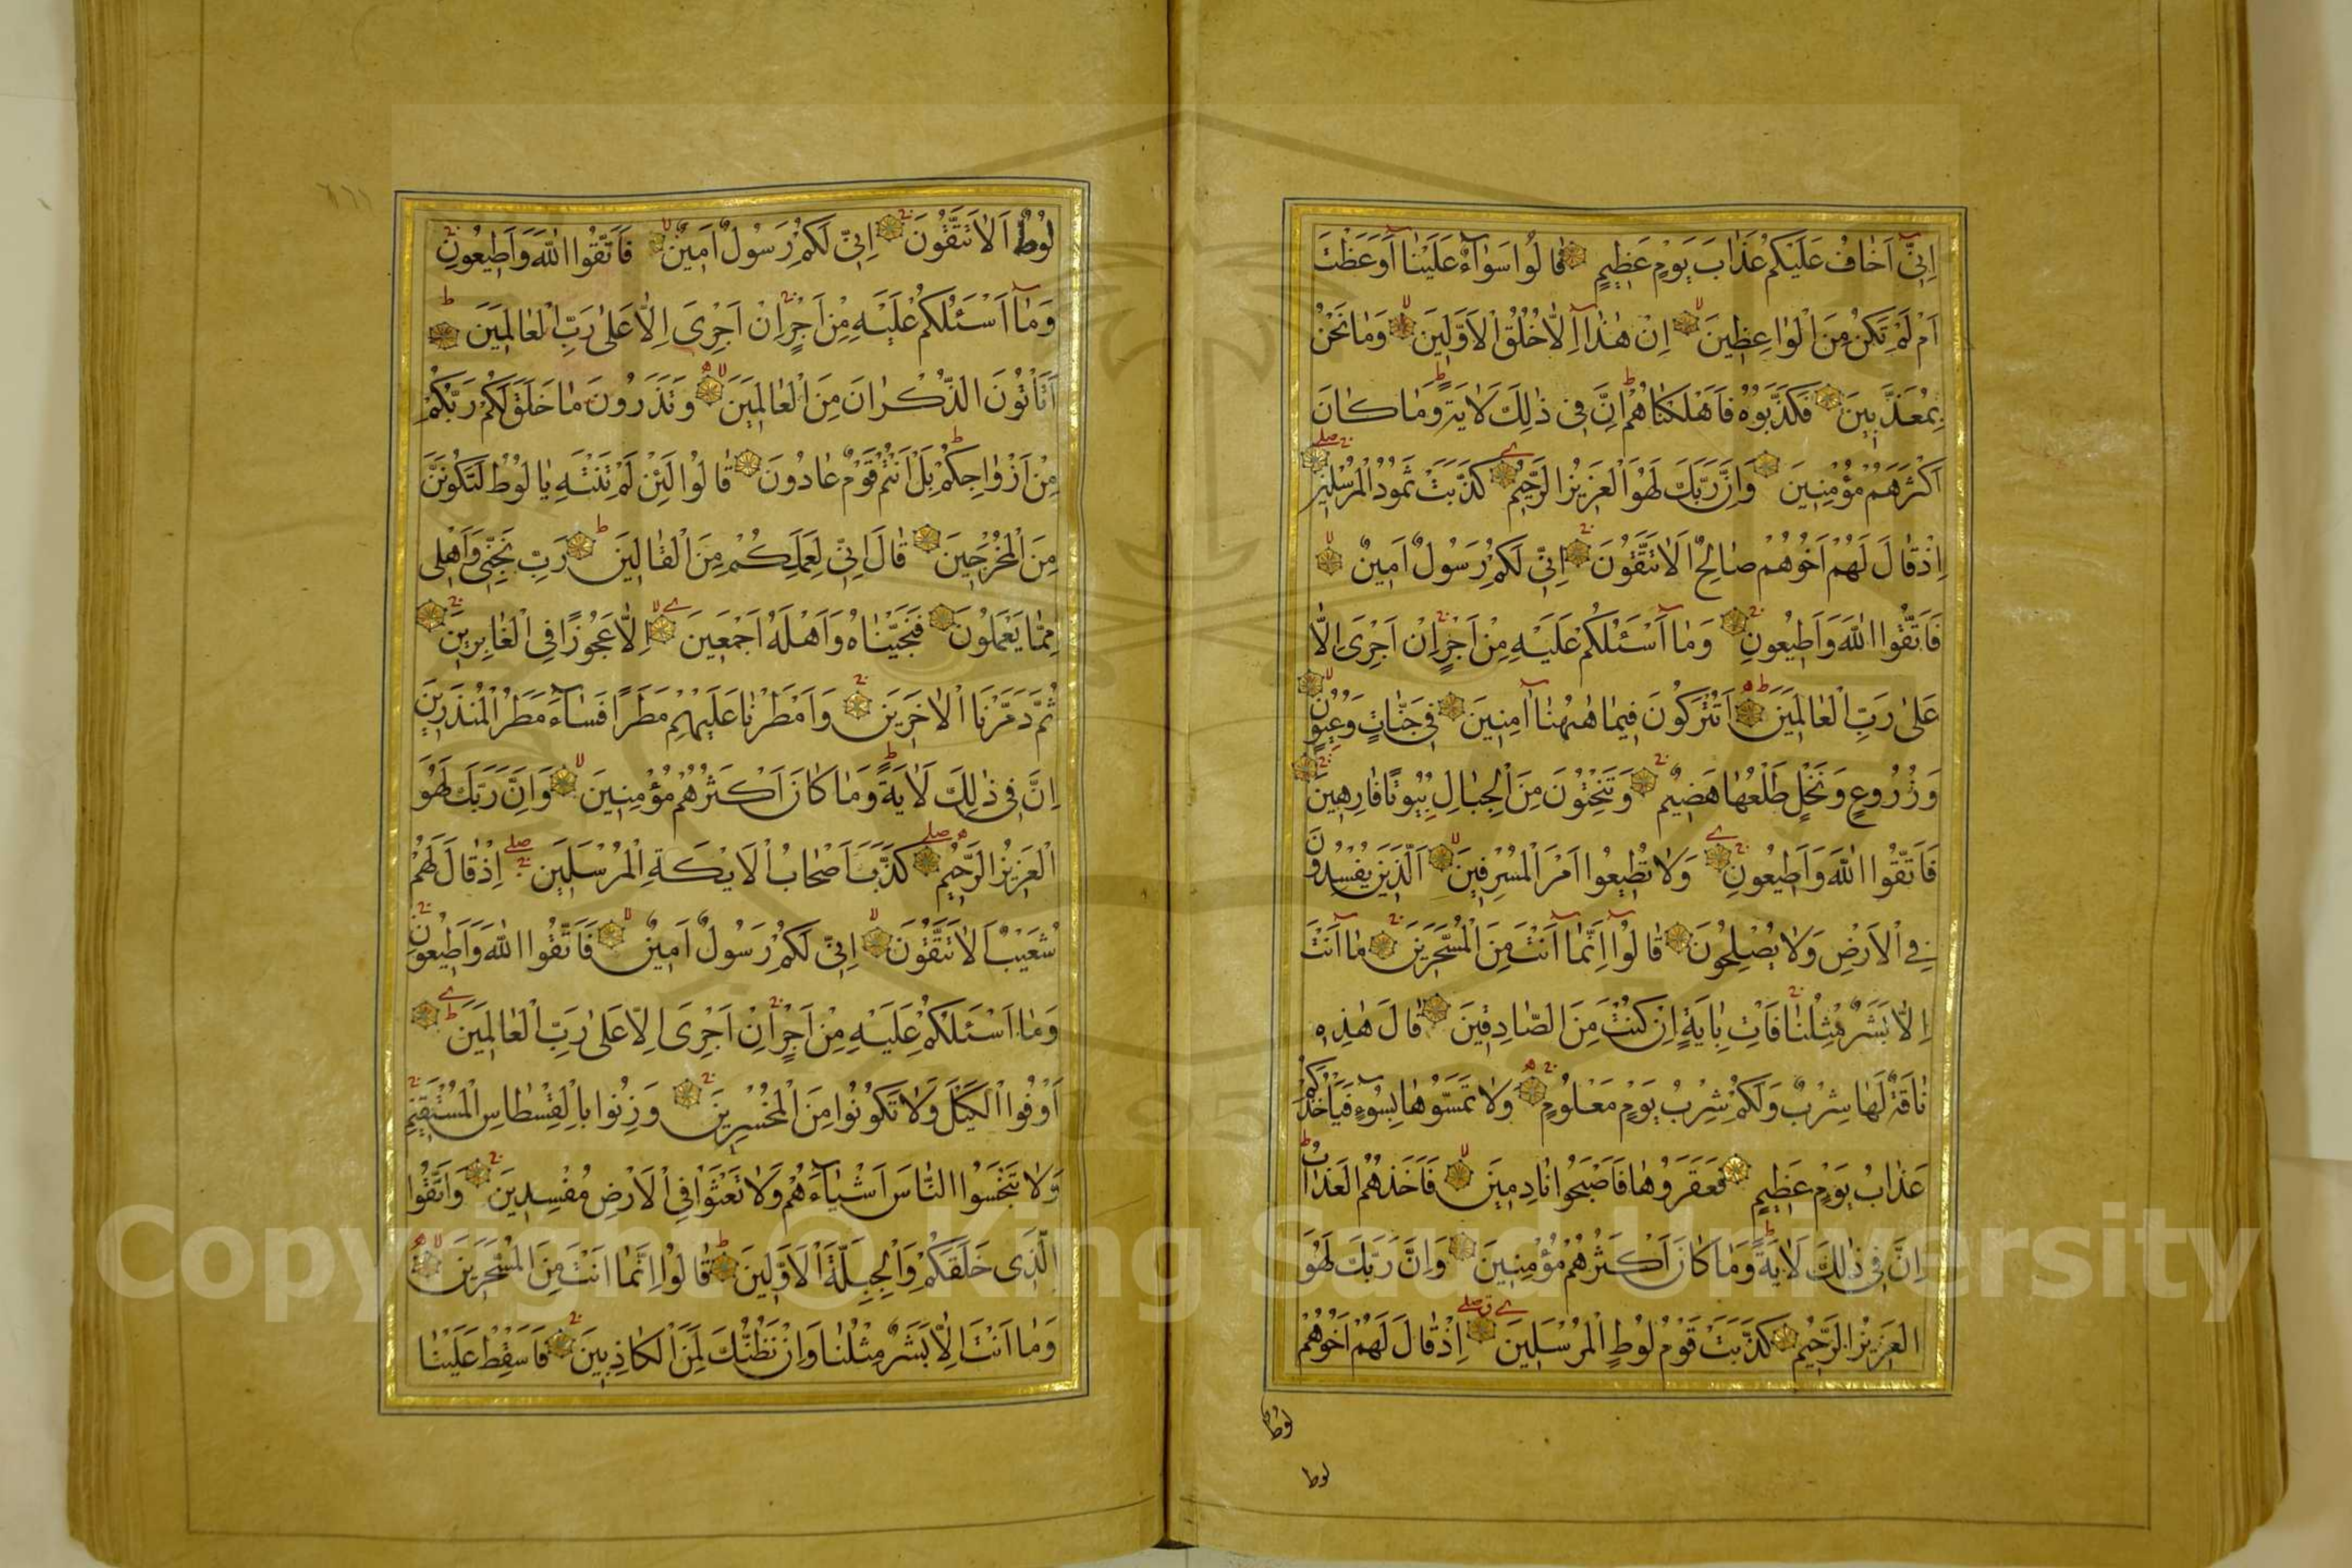 اِنّٖى اَخَافُ عَلَيْكُمْ عَذَابَ يَوْمٍ عَظِيمٍ قَالُوا سَوَآءٌ عَلَيْنَآ اَوَعَظْتَ
اَمْ لَمْ تَكُنْ مِنَ الْوَاعِظِينَ اِنْ هٰذَآ اِلَّا خُلُقُ الْاَوَّلِينَ وَمَا نَحْنُ
بِمُعَذَّبِينَ فَكَذَّبُوهُ فَاَهْلَكْنَاهُمْ اِنَّ فِى ذٰلِكَ لَاٰيَةً وَمَا كَانَ
اَكْثَرُهُمْ مُؤْمِنِينَ وَاِنَّ رَبَّكَ لَهُوَ الْعَزِيزُ الرَّحِيمُ كَذَّبَتْ ثَمُودُ الْمُرْسَلِينَ
اِذْ قَالَ لَهُمْ اَخُوهُمْ صَالِحٌ اَلَا تَتَّقُونَ اِنِّى لَكُمْ رَسُولٌ اَمِينٌ
فَاتَّقُوا اللّٰهَ وَاَطِيعُونِ وَمَآ اَسْـَٔلُكُمْ عَلَيْهِ مِنْ اَجْرٍ اِنْ اَجْرِىَ اِلَّا
عَلٰى رَبِّ الْعَالَمِينَ اَتُتْرَكُونَ فِيمَا هٰهُنَآ اٰمِنِينَ فِى جَنَّاتٍ وَعُيُونٍ
وَزُرُوعٍ وَنَخْلٍ طَلْعُهَا هَضِيمٌ وَتَنْحِتُونَ مِنَ الْجِبَالِ بُيُوتًا فَارِهِينَ
فَاتَّقُوا اللّٰهَ وَاَطِيعُونِ وَلَا تُطِيعُوا اَمْرَ الْمُسْرِفِينَ اَلَّذِينَ يُفْسِدُونَ
فِى الْاَرْضِ وَلَا يُصْلِحُونَ قَالُوآ اِنَّمَآ اَنْتَ مِنَ الْمُسَحَّرِينَ مَآ اَنْتَ
اِلَّا بَشَرٌ مِثْلُنَا فَاْتِ بِاٰيَةٍ اِنْ كُنْتَ مِنَ الصَّادِقِينَ قَالَ هٰذِهِ
نَاقَةٌ لَهَا شِرْبٌ وَلَكُمْ شِرْبُ يَوْمٍ مَعْلُومٍ وَلَا تَمَسُّوهَا بِسُوٓءٍ فَيَاْخُذَكُمْ
عَذَابُ يَوْمٍ عَظِيمٍ فَعَقَرُوهَا فَاَصْبَحُوا نَادِمِينَ فَاَخَذَهُمُ الْعَذَابُ
اِنَّ فِى ذٰلِكَ لَاٰيَةً وَمَا كَانَ اَكْثَرُهُمْ مُؤْمِنِينَ وَاِنَّ رَبَّكَ لَهُوَ
الْعَزِيزُ الرَّحِيمُ كَذَّبَتْ قَوْمُ لُوطٍ الْمُرْسَلِينَ اِذْ قَالَ لَهُمْ اَخُوهُمْ
لوط
لوط
لُوطٌ اَلَا تَتَّقُونَ اِنِّى لَكُمْ رَسُولٌ اَمِينٌ فَاتَّقُوا اللّٰهَ وَاَطِيعُونِ
وَمَآ اَسْـَٔلُكُمْ عَلَيْهِ مِنْ اَجْرٍ اِنْ اَجْرِىَ اِلَّا عَلٰى رَبِّ الْعَالَمِينَ
اَتَاْتُونَ الذُّكْرَانَ مِنَ الْعَالَمِينَ وَتَذَرُونَ مَا خَلَقَ لَكُمْ رَبُّكُمْ
مِنْ اَزْوَاجِكُمْ بَلْ اَنْتُمْ قَوْمٌ عَادُونَ قَالُوا لَئِنْ لَمْ تَنْتَهِ يَا لُوطُ لَتَكُونَنَّ
مِنَ الْمُخْرَجِينَ قَالَ اِنِّى لِعَمَلِكُمْ مِنَ الْقَالِينَ رَبِّ نَجِّنِى وَاَهْلِى
مِمَّا يَعْمَلُونَ فَنَجَّيْنَاهُ وَاَهْلَهُ اَجْمَعِينَ اِلَّا عَجُوزًا فِى الْغَابِرِينَ
ثُمَّ دَمَّرْنَا الْاٰخَرِينَ وَاَمْطَرْنَا عَلَيْهِمْ مَطَرًا فَسَآءَ مَطَرُ الْمُنْذَرِينَ
اِنَّ فِى ذٰلِكَ لَاٰيَةً وَمَا كَانَ اَكْثَرُهُمْ مُؤْمِنِينَ وَاِنَّ رَبَّكَ لَهُوَ
الْعَزِيزُ الرَّحِيمُ كَذَّبَ اَصْحَابُ الْاَيْكَةِ الْمُرْسَلِينَ اِذْ قَالَ لَهُمْ
شُعَيْبٌ اَلَا تَتَّقُونَ اِنِّى لَكُمْ رَسُولٌ اَمِينٌ فَاتَّقُوا اللّٰهَ وَاَطِيعُونِ
وَمَا اَسْـَٔلُكُمْ عَلَيْهِ مِنْ اَجْرٍ اِنْ اَجْرِىَ اِلَّا عَلٰى رَبِّ الْعَالَمِينَ
اَوْفُوا الْكَيْلَ وَلَا تَكُونُوا مِنَ الْمُخْسِرِينَ وَزِنُوا بِالْقِسْطَاسِ الْمُسْتَقِيمِ
وَلَا تَبْخَسُوا النَّاسَ اَشْيَآءَهُمْ وَلَا تَعْثَوْا فِى الْاَرْضِ مُفْسِدِينَ وَاتَّقُوا
الَّذِى خَلَقَكُمْ وَالْجِبِلَّةَ الْاَوَّلِينَ قَالُوا اِنَّمَا اَنْتَ مِنَ الْمُسَحَّرِينَ
وَمَا اَنْتَ اِلَّا بَشَرٌ مِثْلُنَا وَاِنْ نَظُنُّكَ لَمِنَ الْكَاذِبِينَ فَاَسْقِطْ عَلَيْنَا
Copyright © King Saud University